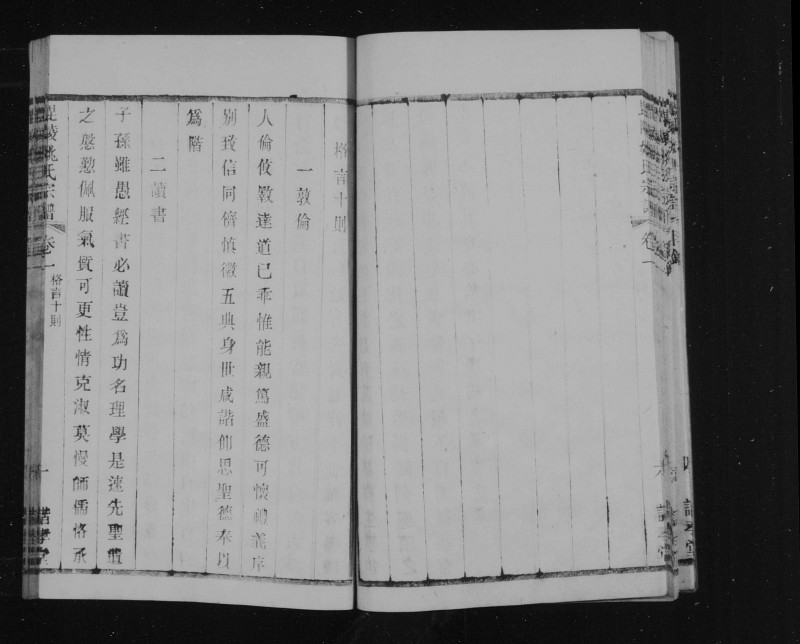 格言十則
一敦倫
人倫攸斁達道已乖惟能親篤盛德可懷禮龍序
別我信同儕慎徽五典身世咸諧仰思聖德奉以
為階
二讀書
子孫雖愚經書必讀豈為功名理學是速先聖遺
之慇懃佩服氣質可更性情克淑莫慢師儒恪承
毘陵姚氏宗譜 卷一 格言十則
卷一